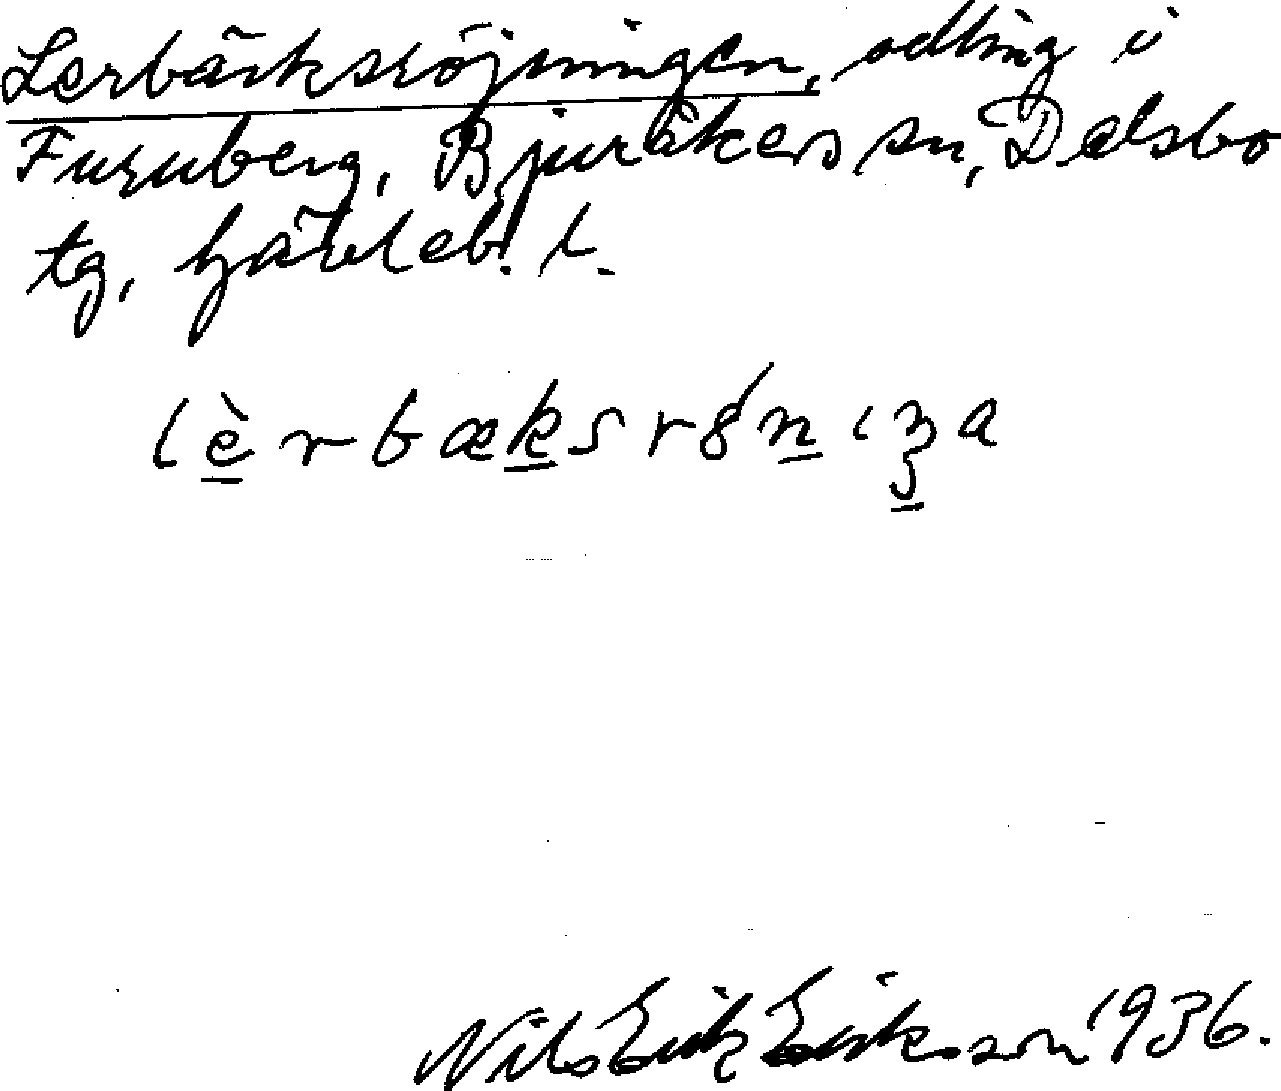 Lerbäcksröjningen, odling i
Furuberg, Bjuråkers sn, Delsbo
tg, Gävleb. l.
lèrbæksrönıŋa
Nils Erik Eriksson 1936.